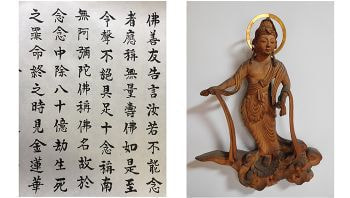 佛善友告言汝若不能念
者應稱無量壽佛如是至
心令聲不絕具足十念稱南
無阿彌陀佛稱佛名故於
念念中除八十億劫生死
之罪命終之時見金蓮華